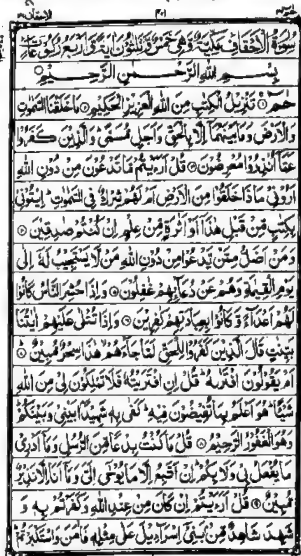 سُورَةُ الْأَحْقَافِ مَكِّيَّةٌ وَهِيَ خَمْسٌ وَثَلٰثُونَ اٰيَةً وَّاَرْبَعُ رُكُوْعَاتٍ
بِسْمِ اللهِ الرَّحْمٰنِ الرَّحِيْمِ
حٰمٓ تَنْزِيْلُ الْكِتٰبِ مِنَ اللهِ الْعَزِيْزِ الْحَكِيْمِ مَا خَلَقْنَا السَّمٰوٰتِ
وَالْاَرْضَ وَمَا بَيْنَهُمَا اِلَّا بِالْحَقِّ وَاَجَلٍ مُّسَمًّى وَالَّذِيْنَ كَفَرُوْا
عَمَّا اُنْذِرُوْا مُعْرِضُوْنَ قُلْ اَرَءَيْتُمْ مَّا تَدْعُوْنَ مِنْ دُوْنِ اللهِ
اَرُوْنِيْ مَاذَا خَلَقُوْا مِنَ الْاَرْضِ اَمْ لَهُمْ شِرْكٌ فِي السَّمٰوٰتِ اِيْتُوْنِيْ
بِكِتٰبٍ مِّنْ قَبْلِ هٰذَا اَوْ اَثٰرَةٍ مِّنْ عِلْمٍ اِنْ كُنْتُمْ صٰدِقِيْنَ
وَمَنْ اَضَلُّ مِمَّنْ يَّدْعُوْا مِنْ دُوْنِ اللهِ مَنْ لَّا يَسْتَجِيْبُ لَهٗ اِلٰى
يَوْمِ الْقِيٰمَةِ وَهُمْ عَنْ دُعَآئِهِمْ غٰفِلُوْنَ وَاِذَا حُشِرَ النَّاسُ كَانُوْا
لَهُمْ اَعْدَآءً وَّكَانُوْا بِعِبَادَتِهِمْ كٰفِرِيْنَ وَاِذَا تُتْلٰى عَلَيْهِمْ اٰيٰتُنَا
بَيِّنٰتٍ قَالَ الَّذِيْنَ كَفَرُوْا لِلْحَقِّ لَمَّا جَآءَهُمْ هٰذَا سِحْرٌ مُّبِيْنٌ
اَمْ يَقُوْلُوْنَ افْتَرٰىهُ قُلْ اِنِ افْتَرَيْتُهٗ فَلَا تَمْلِكُوْنَ لِيْ مِنَ اللهِ
شَيْئًا هُوَ اَعْلَمُ بِمَا تُفِيْضُوْنَ فِيْهِ كَفٰى بِهٖ شَهِيْدًا بَيْنِيْ وَبَيْنَكُمْ
وَهُوَ الْغَفُوْرُ الرَّحِيْمُ قُلْ مَا كُنْتُ بِدْعًا مِّنَ الرُّسُلِ وَمَآ اَدْرِيْ
مَا يُفْعَلُ بِيْ وَلَا بِكُمْ اِنْ اَتَّبِعُ اِلَّا مَا يُوْحٰى اِلَيَّ وَمَآ اَنَا اِلَّا نَذِيْرٌ
مُّبِيْنٌ قُلْ اَرَءَيْتُمْ اِنْ كَانَ مِنْ عِنْدِ اللهِ وَكَفَرْتُمْ بِهٖ وَ
شَهِدَ شَاهِدٌ مِّنْ بَنِيْٓ اِسْرَآءِيْلَ عَلٰى مِثْلِهٖ فَاٰمَنَ وَاسْتَكْبَرْتُمْ